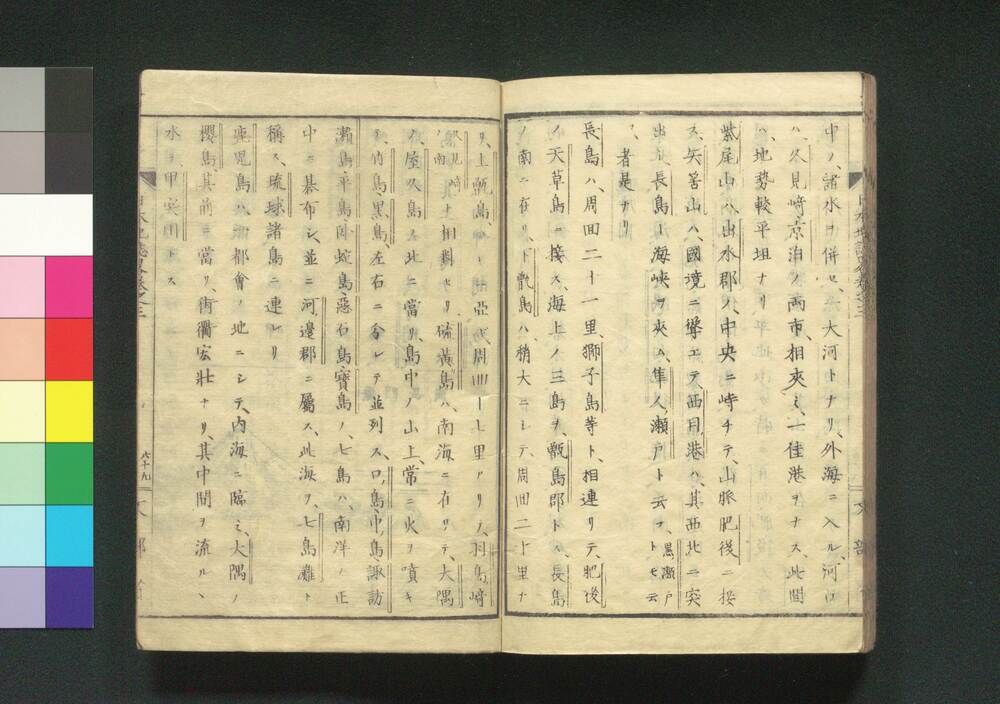 中ノ諸水ヲ併セ、大河トナリ、外海ニ入ル、河口
ハ、久見崎京泊ノ両市、相夾ミ、一佳港ヲナス、此間
ハ、地勢較平坦ナリ
紫尾山ハ、出水郡ノ中央ニ峙チテ、山脈肥後ニ接
ス、矢筈山ハ、國境ニ聳エテ、西目港ハ、其西北ニ突
出シ、長島ト海峡ヲ夾ム、隼人瀬戸ト云フ、黒瀬戸トモ云
者是ナリ
長島ハ、周回二十一里、獅子島等ト、相連リテ、肥後
ノ天草島ニ接ス、海上ノ三島ヲ甑島郡ト、長島
ノ南ニ在リ、下甑島ハ、稍大ニシテ、周回二十里ナ
リ、上甑島、亞ギ、周回十七里アリ、羽島崎
久見崎ノ南ト相對セリ、硫黃島ハ、南海ニ在リテ、大隅
ノ屋久島ノ北ニ當リ、島中ノ山上、常ニ火ヲ噴キ
竹島、黒島、左右ニ分レテ並列ス、口ノ島、中ノ島、諏訪
瀬島、平島、臥蛇島、惡石島、寶島ノ七島ハ、南洋ノ正
中ニ碁布シ、並ニ河邊郡ニ屬ス、此海ヲ、七島灘ト
稱ス、琉球諸島ニ連レリ
鹿児島ハ、都會ノ地ニシテ、内海ニ臨ミ、大隅ノ
櫻島、其前ニ當リ、街衢宏壮ナリ、其中間ヲ流ルヽ
水ヲ、甲突川トス
日本地誌略巻之三
九十九
文部省